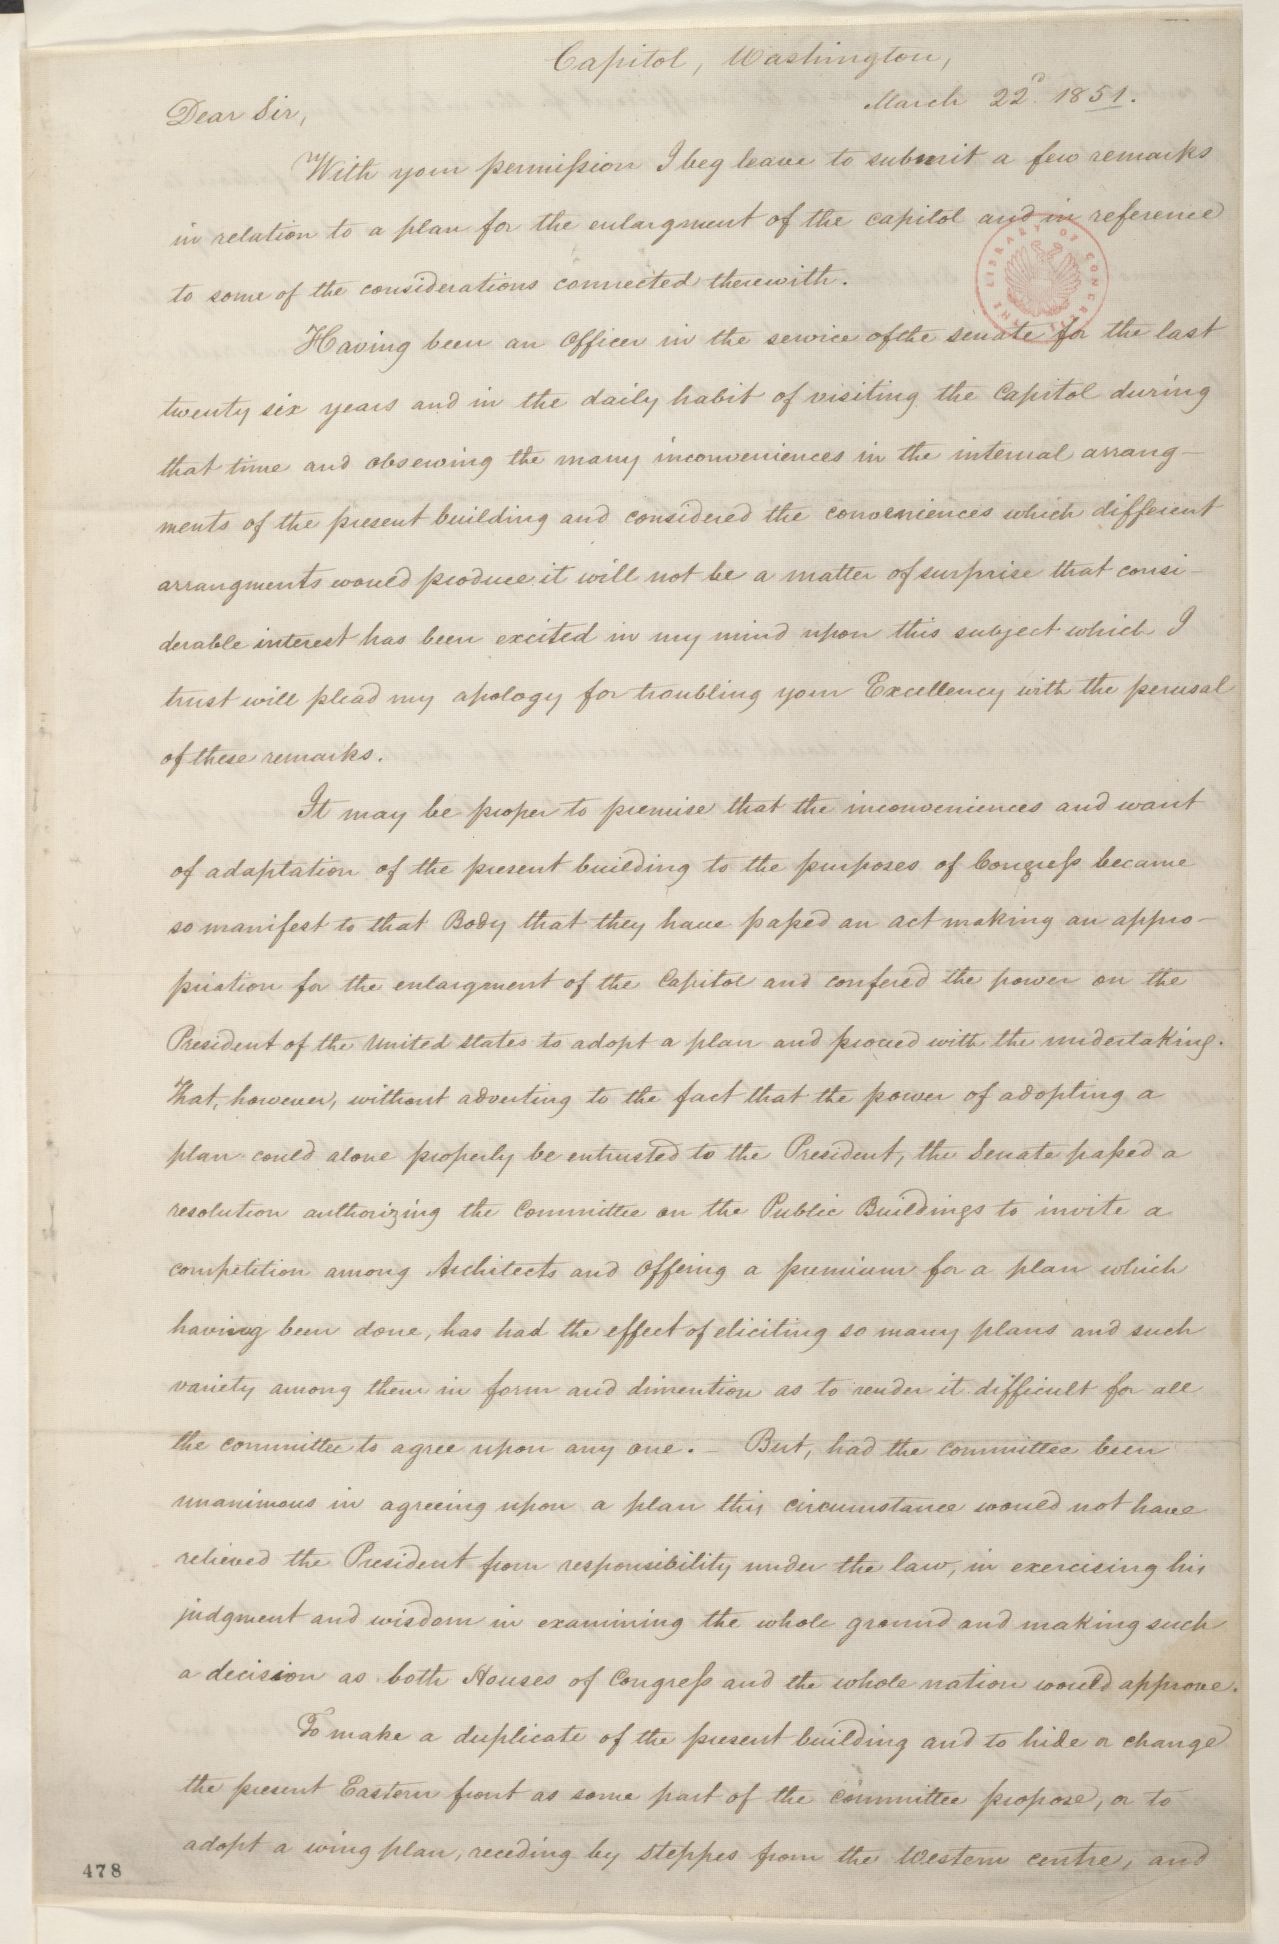 Capitol, Washington,
March 22d. 1851.
Dear Sir,
With your permission I beg leave to submit a few remarks
in relation to a plan for the enlargment of the capitol and in reference
to some of the considerations connected therewith.
THE LIBRARY OF CONGRESS
Having been an Officer in the service of the senate for the last
twenty six years and in the daily habit of visiting the Capitol during
that time and observing the many inconveniences in the internal arrang-
ments of the present building and considered the conveniences which different
arrangments would produce it will not be a matter of surprise that consi-
derable interest has been excited in my mind upon this subject which I
trust will plead my apology for troubling your Excellency with the perusal
of these remarks.
It may be proper to premise that the inconveniences and want
of adaptation of the present building to the purposes of Congress became
so manifest to that Body that they have passed an act making an appro-
priation for the enlargment of the Capitol and confered the power on the
President of the United States to adopt a plan and proceed with the undertaking.
That, however, without adverting to the fact that the power of adopting a
plan could alone properly be entrusted to the President, the Senate passed a
resolution authorizing the Committee on the Public Buildings to invite a
competition among Architects and offering a premium for a plan which
having been done, has had the effect of eliciting so many plans and such
variety among them in form and dimention as to render it difficult for all
the committee to agree upon any one. - But, had the committee been
unanimous in agreeing upon a plan this circumstance would not have
relieved the President from responsibility under the law, in exercising his
judgment and wisdom in examining the whole ground and making such
a decision as both Houses of Congress and the whole nation would approve.
To make a duplicate of the present building and to hide or change
the present Eastern front as some part of the Committee propose, or to
adopt a wing plan, receding by steppes from the Western centre, and
478